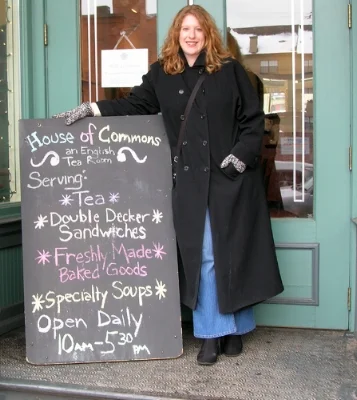 House of Commons
an English
Tea Room
Serving:
Tea
Double Decker
Sandwiches
Freshly Made
Baked Goods
Specialty Soups
Open Daily
10AM-5:30 PM